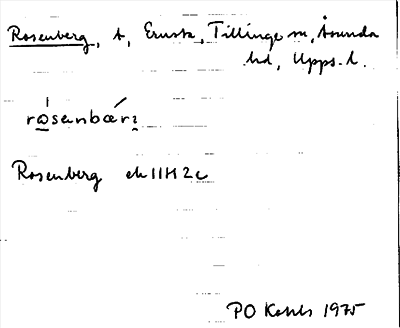 Rosenberg, t, Ernsta, Tillinge sn, Åsunda
hd, Upps. l.
rosanbærɩ
Rosenberg ek 11H 2c
PO Kahls 1975